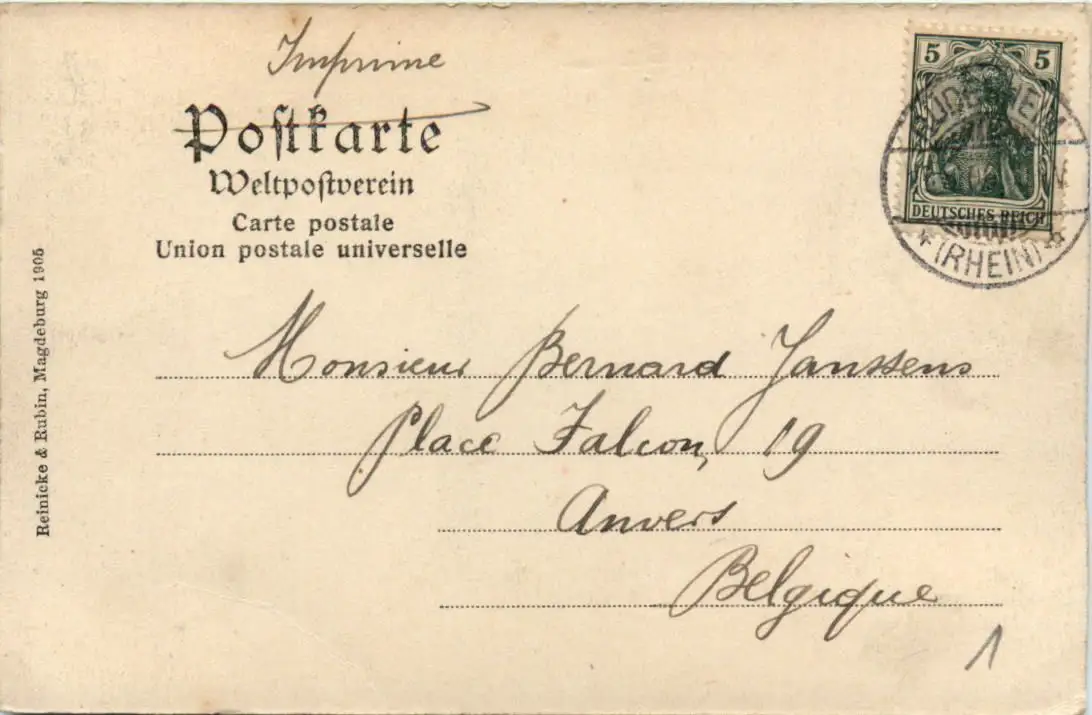 Imprime
Postkarte
Weltpostverein
Carte postale
Union postale universelle
5 5
DEUTSCHES REICH
(RHEIN)
Monsieur Bernard Janssens
Place Falcon, 19
Anvers
Belgique
1
Reinicke & Rubin, Magdeburg 1905